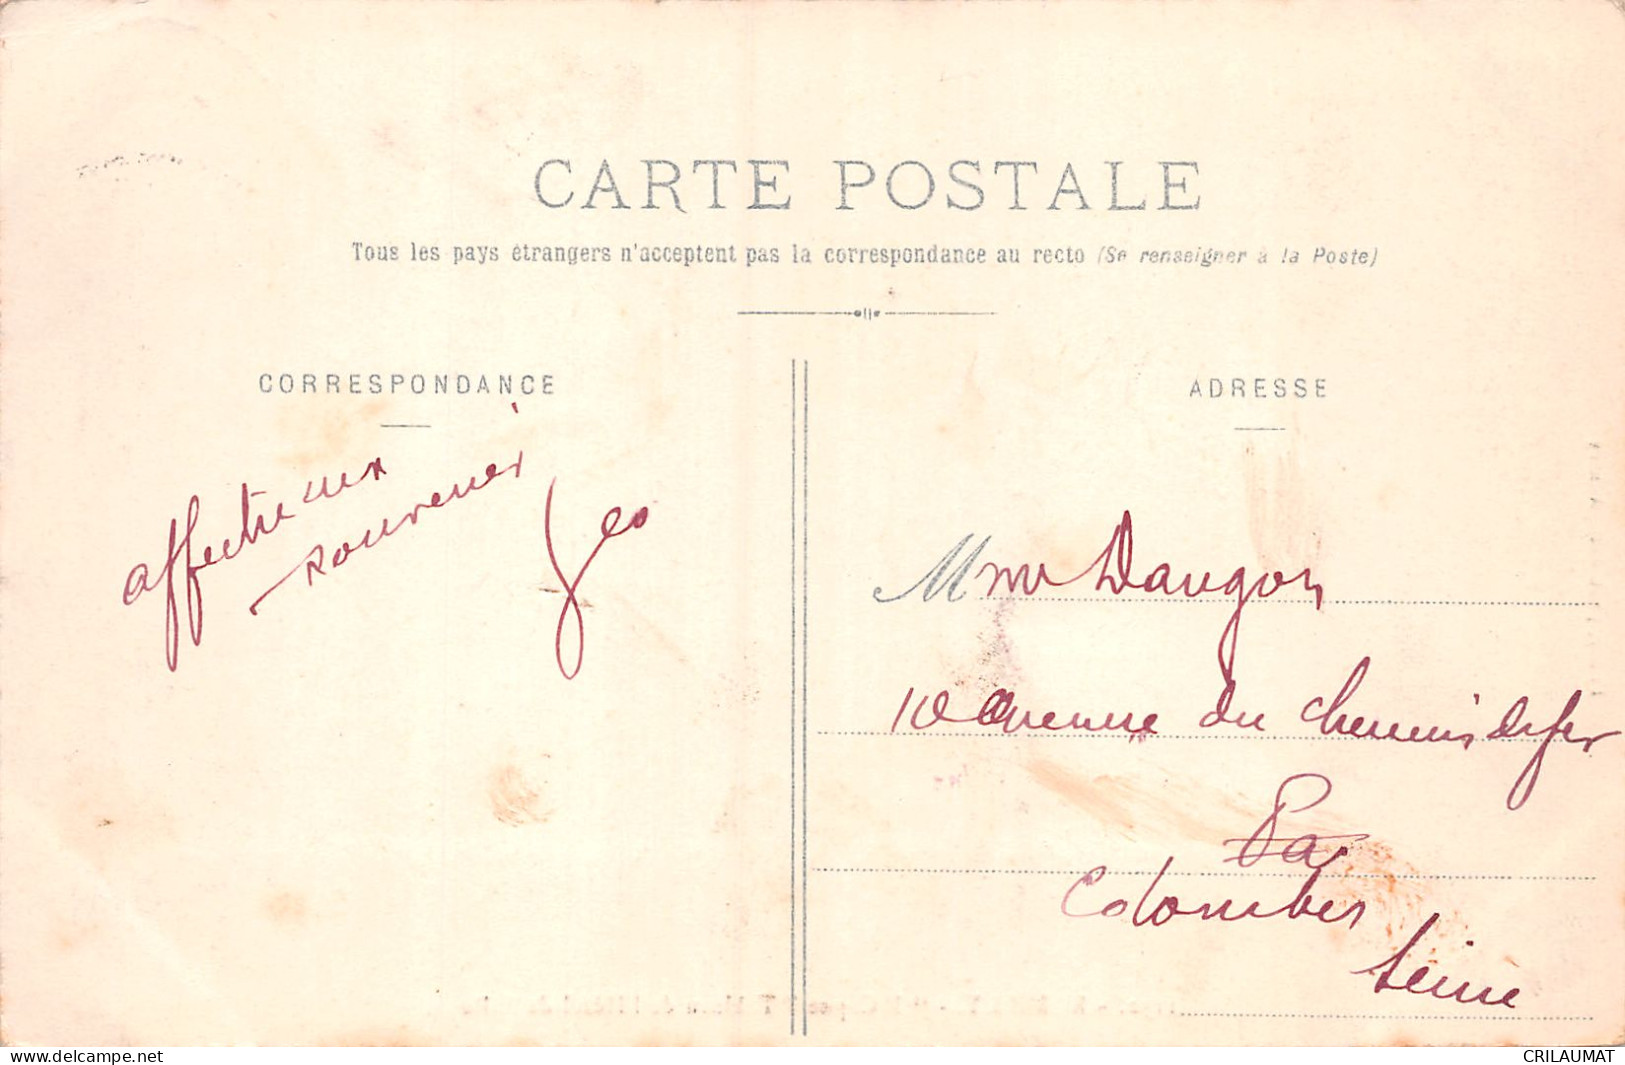 CARTE POSTALE
Tous les pays étrangers n'acceptent pas la correspondance au recto (Se renseigner à la Poste)
CORRESPONDANCE
ADRESSE
affectueux
souvenir
Geo
Mme Daugon
10 avenue du chemin de fer
Pa
Colombes
Seine
delcampe.net
CRILAUMAT